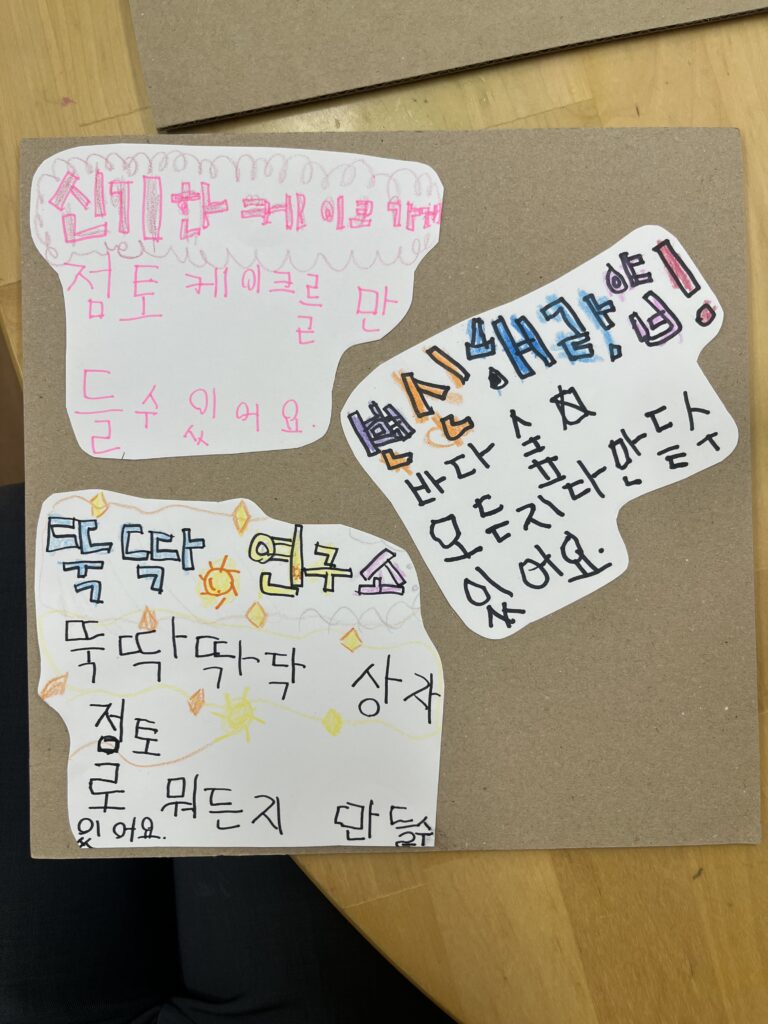 신기한 케이크 가게
점토 케이크를 만
들수 있어요.
변신해랑이!
바다 숲
모든지다만들수
있어요.
뚝딱 연구소
뚝딱딱닥 상자
점토
로 뭐든지 만들수
있어요.